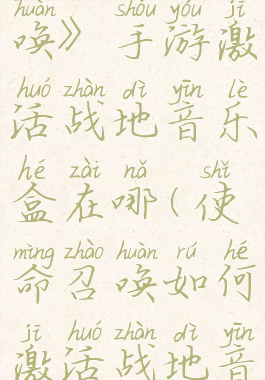 huàn shǒu yóu jī
唤》 手游激
huó zhàn dì yīn lè
活战地音乐
hé zài nǎ shǐ
盒在哪(使
mìng zhào huàn rú hé
命召唤如何
jī huó zhàn dì yīn
激活战地音